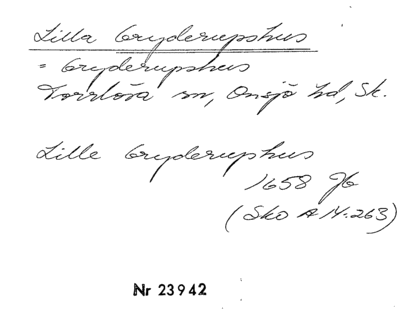 Lilla Gryderupshus
= Gryderupshus
Torrlösa sn, Onsjö hd, Sk.
Lille Gryderupshus
1658 Jb
(Sko A 14:263)
Nr 23942